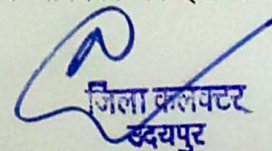 जिला कलेक्टर
उदयपुर